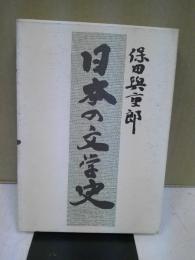 保田與重郎
日本の文学史